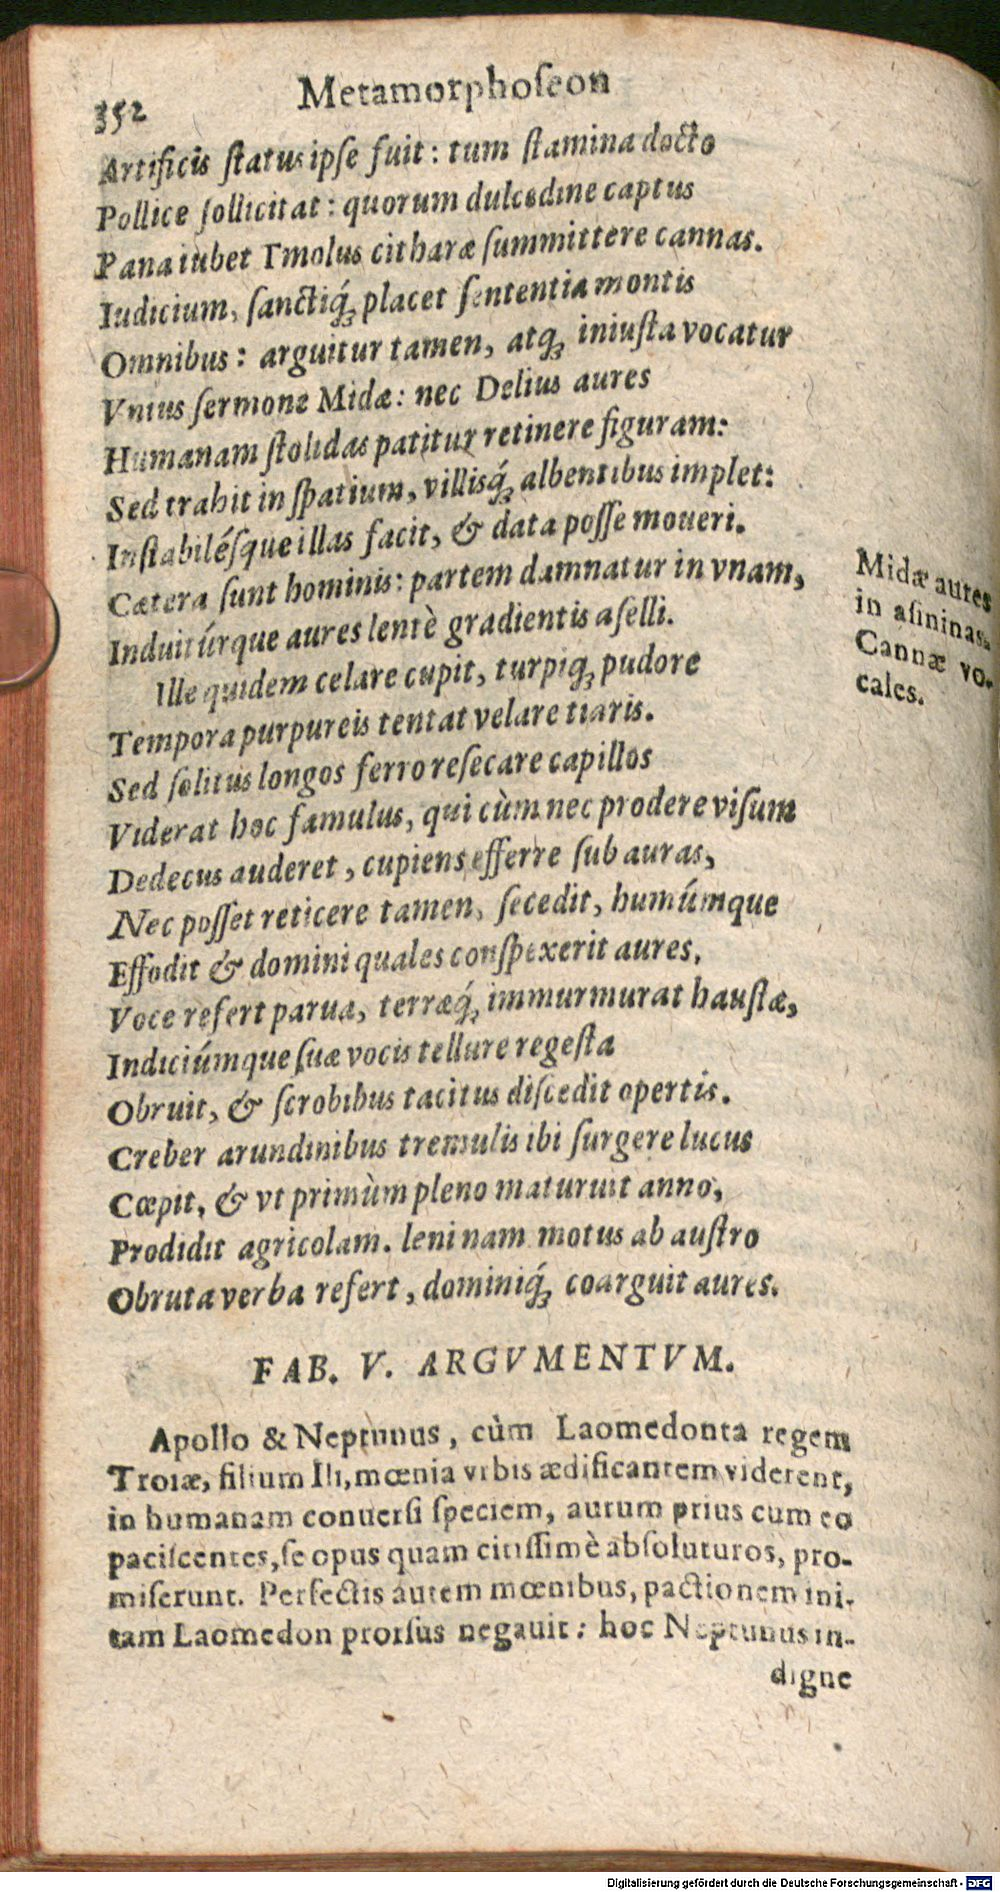 352
Metamorphoſeon
Artificis ſtatus ipſe fuit: tum ſtamina docto
Pollice ſollicitat: quorum dulcedine captus
Pana iubet Tmolus citharæ ſummittere cannas.
Iudicium, ſanctiq́ꝫ placet ſententia montis
Omnibus: arguitur tamen, atqꝫ iniuſta vocatur
Vnius ſermone Midæ: nec Delius aures
Humanam ſtolidas patitur retinere figuram:
Sed trahit in ſpatium, villisq́ꝫ albentibus implet:
Inſtabiléſque illas facit, & data poſſe moueri.
Cætera ſunt hominis: partem damnatur in vnam,
Induitúrque aures lentè gradientis aſelli.
Ille quidem celare cupit, turpiqꝫ pudore
Tempora purpureis tentat velare tiaris.
Sed ſolitus longos ferro reſecare capillos
Viderat hoc famulus, qui cùm nec prodere viſum
Dedecus auderet, cupiens efferre ſub auras,
Nec poſſet reticere tamen, ſecedit, humúmque
Effodit & domini quales conſpexerit aures,
Voce refert parua, terræq́ꝫ immurmurat hauſtæ,
Indiciúmque ſuæ vocis tellure regeſta
Obruit, & ſcrobibus tacitus diſcedit opertis.
Creber arundinibus tremulis ibi ſurgere lucus
Cœpit, & vt primùm pleno maturuit anno,
Prodidit agricolam. leni nam motus ab auſtro
Obruta verba refert, dominiq́ꝫ coarguit aures.
Midæ aures
in aſininas.
Cannæ vo-
cales.
FAB. V. ARGVMENTVM.
Apollo & Neptunus, cùm Laomedonta regem
Troiæ, filium Ili, mœnia vrbis ædificantem viderent,
in humanam conuerſi ſpeciem, aurum prius cum eo
paciſcentes, ſe opus quam citiſſimè abſoluturos, pro-
miſerunt. Perfectis autem mœnibus, pactionem ini-
tam Laomedon prorſus negauit: hoc Neptunus in-
digne
Digitalisierung gefördert durch die Deutsche Forschungsgemeinschaft - DFG